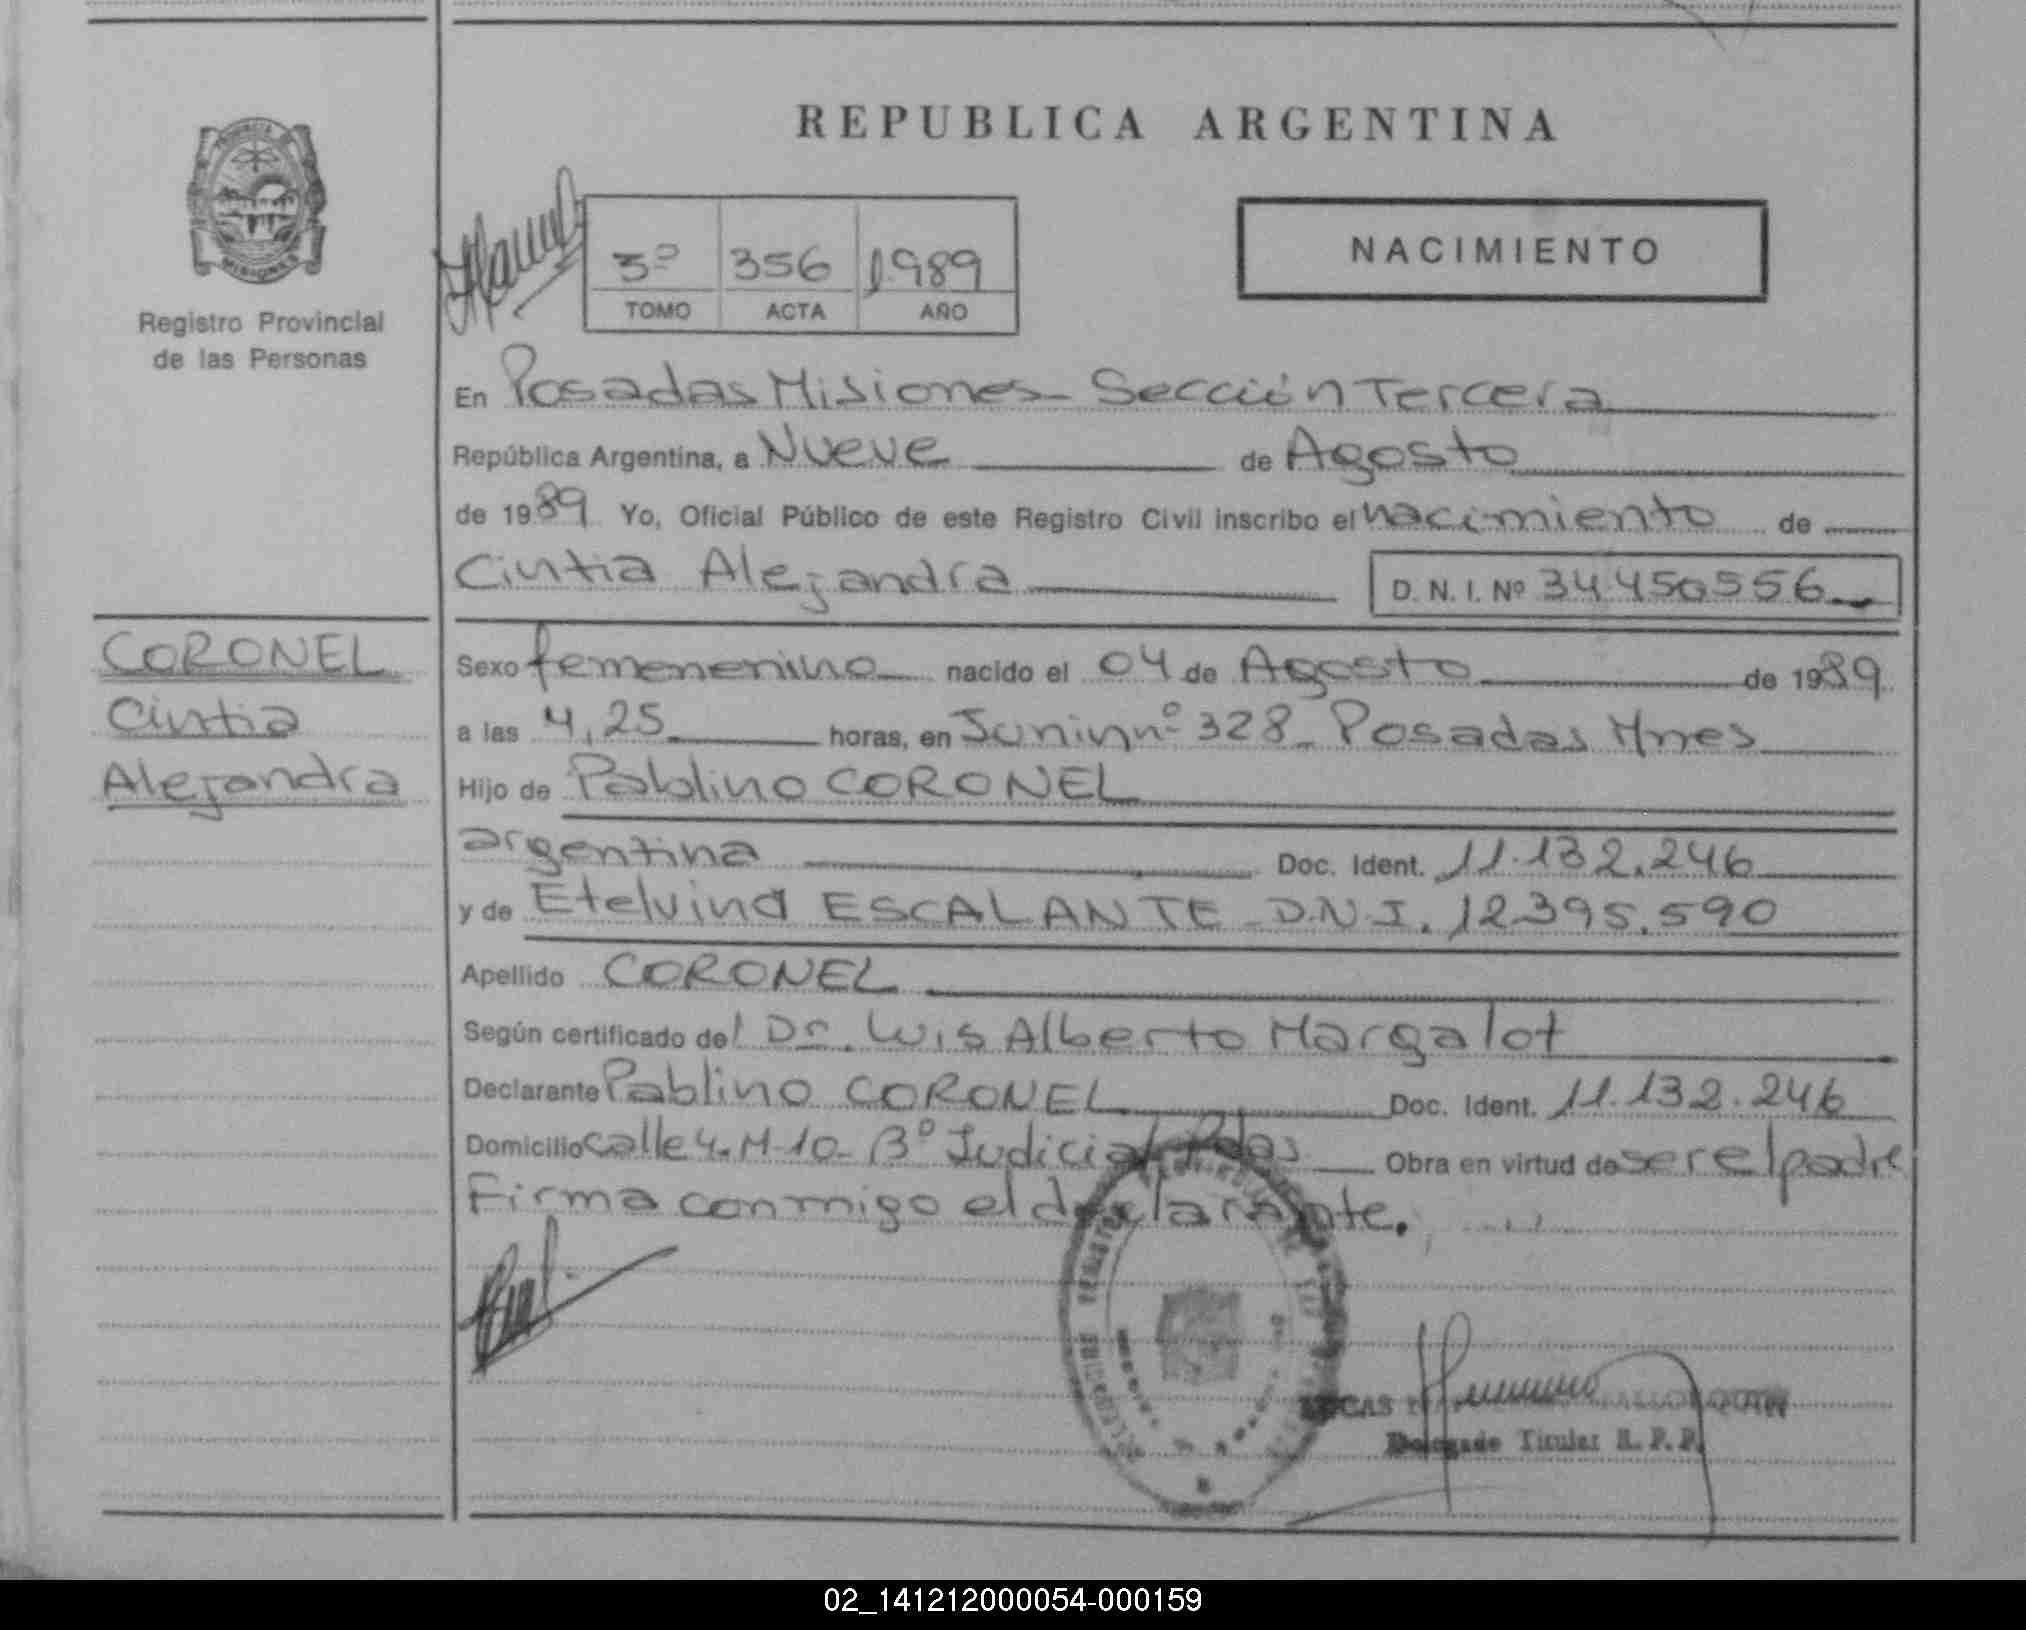 REPUBLICA ARGENTINA
PROVINCIA
MISIONES
Registro Provincial
de las Personas
3º 356 1989
TOMO ACTA AÑO
NACIMIENTO
En Posadas Misiones - Sección Tercera
República Argentina, a Nueve de Agosto
de 1989 Yo, Oficial Público de este Registro Civil inscribo el nacimiento de
Cintia Alejandra D. N. I. Nº 34.450556
CORONEL
Cintia
Alejandra
Sexo femenerino nacido el 04 de Agosto de 1989
a las 4,25 horas, en Junin nº 328 - Posadas Mnes
Hijo de Pablino CORONEL
argentina Doc. Ident. 11.132.246
y de Etelvina ESCALANTE D.N.I. 12395.590
Apellido CORONEL
Según certificado del Dr. Luis Alberto Margalot
Declarante Pablino CORONEL Doc. Ident. 11.132.246
Domicilio calle 4. M-10- Bº Judicial Pdas Obra en virtud de ser el padre
Firma conmigo el declarante.
LUCAS
Delegado Titular R. P. P.
02_141212000054-000159